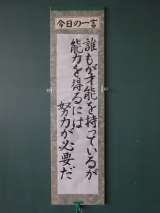 今日の一言
誰もが才能を持っているが
能力を得るには
努力が必要だ